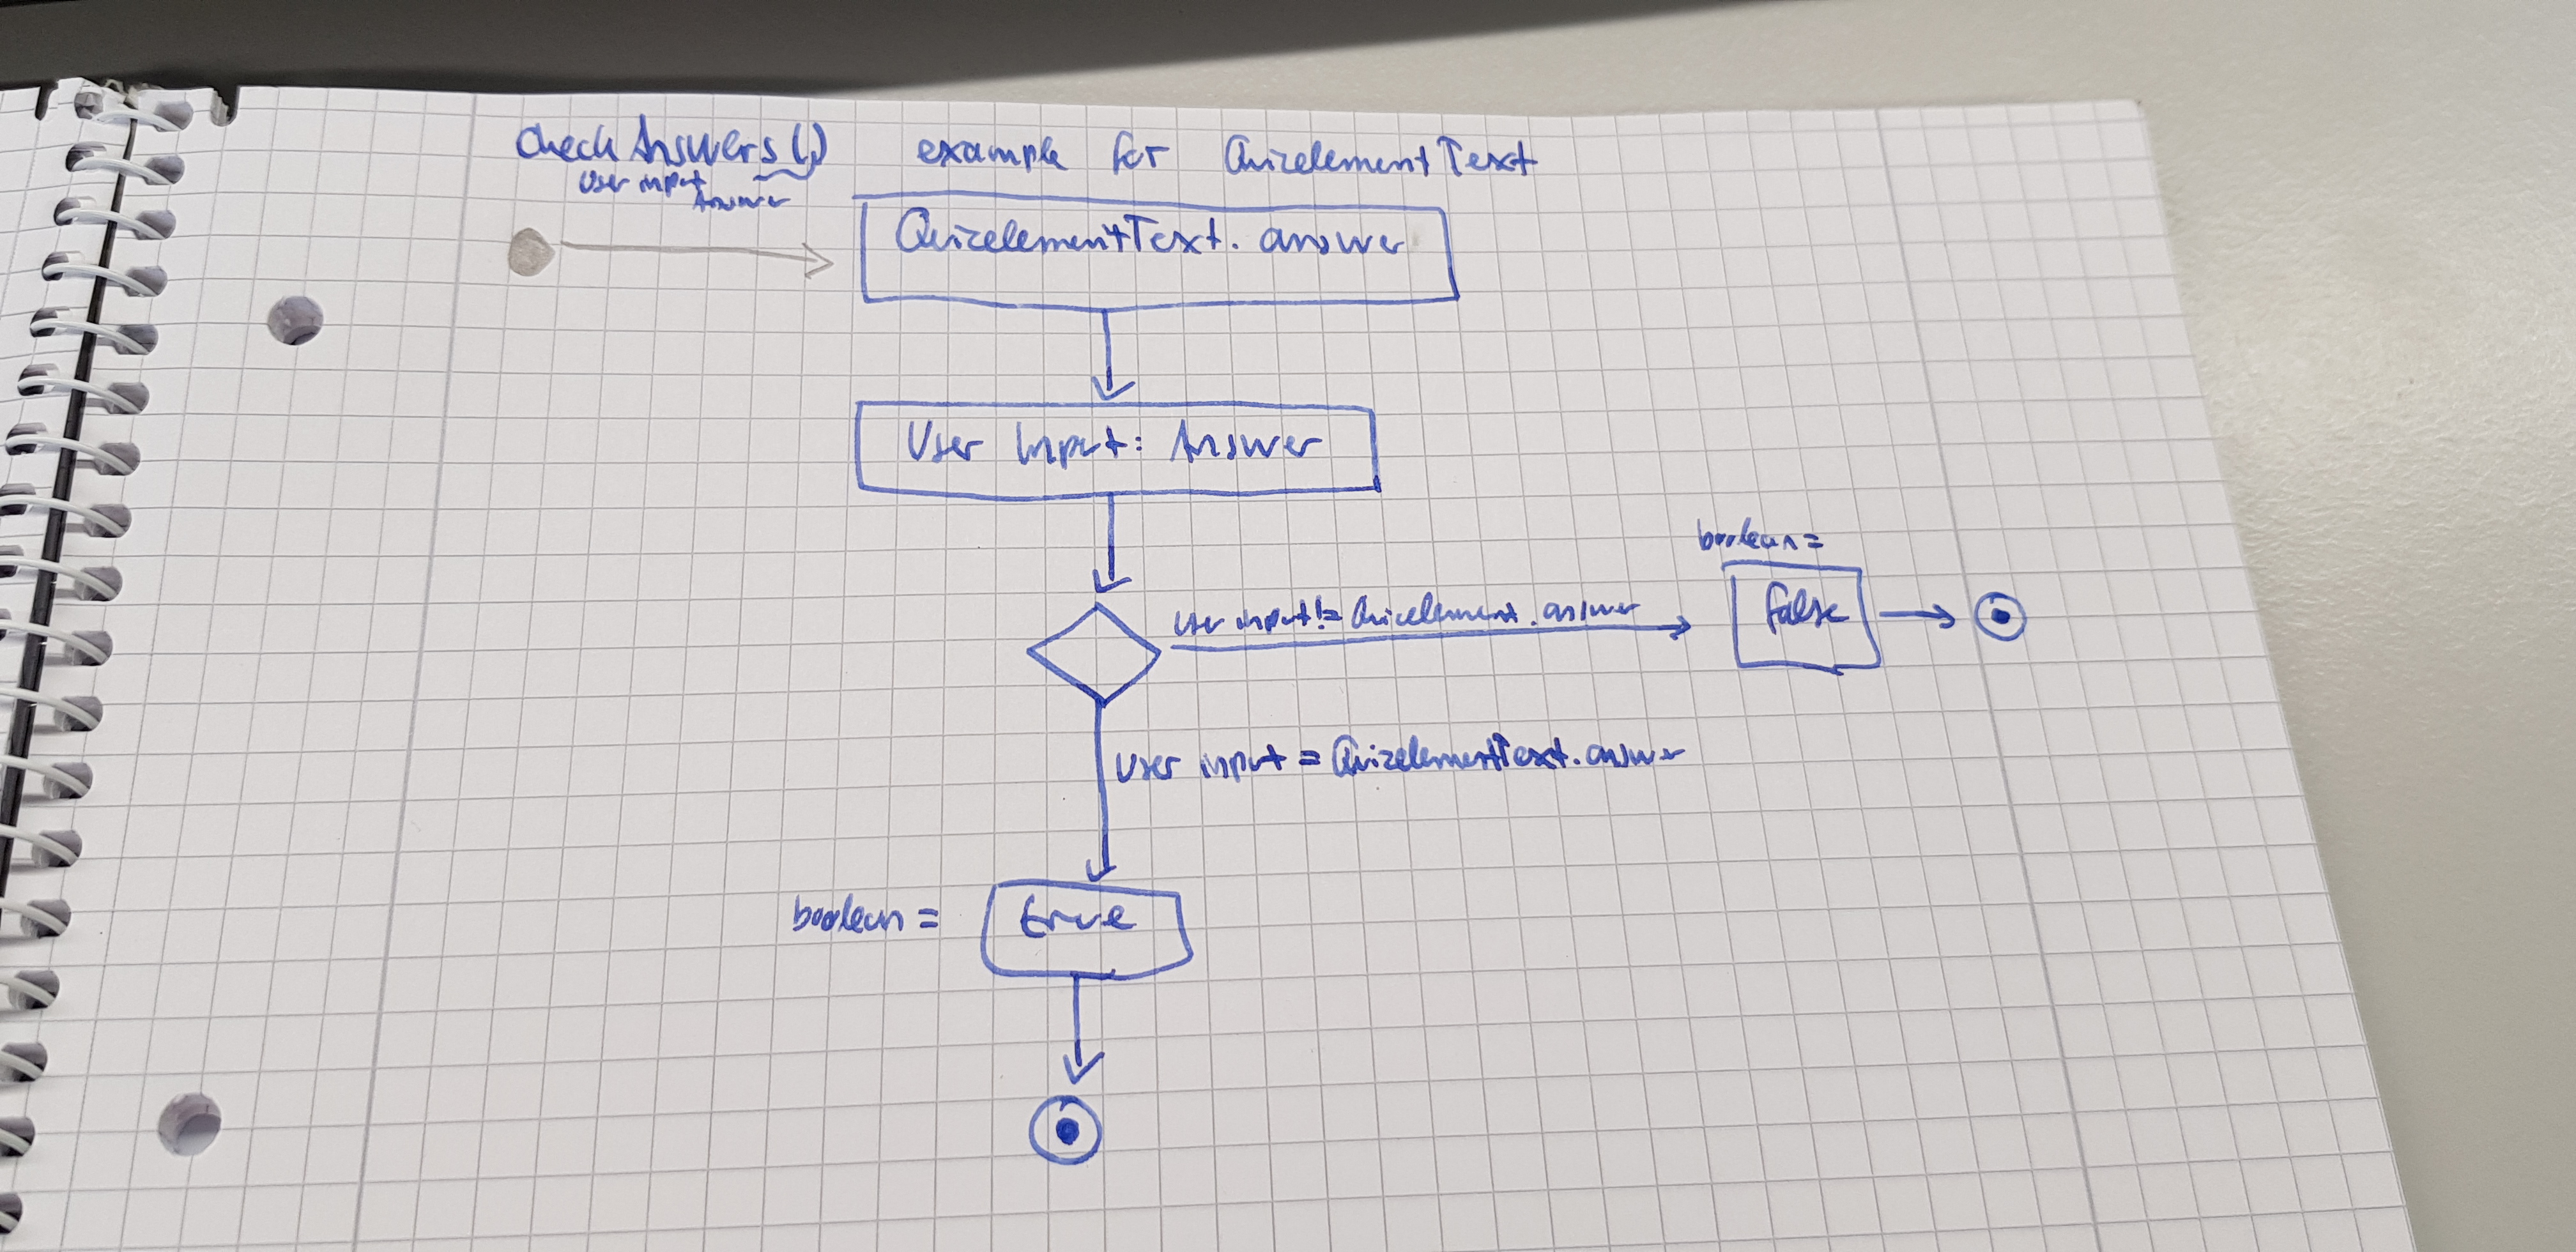 checkAnswers(,) example for QuizelementText
User input
Answer
QuizelementText. answer
User Input: Answer
boolean =
User input != Quizelement.answer
false
User input = QuizelementText.answer
boolean =
true